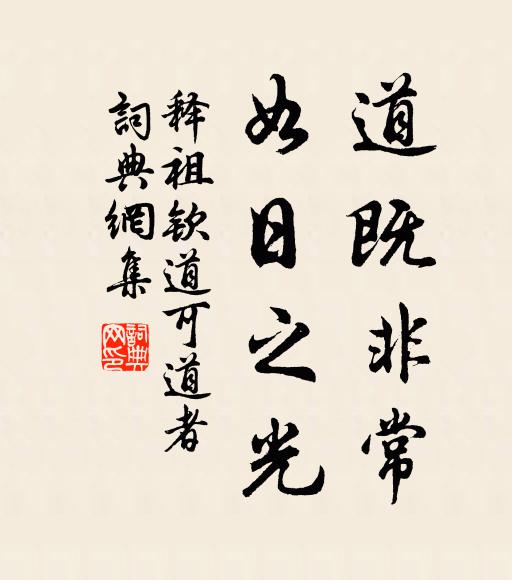 道既非常
如日之光
释祖钦道可道者
詞典網集
詞典网印